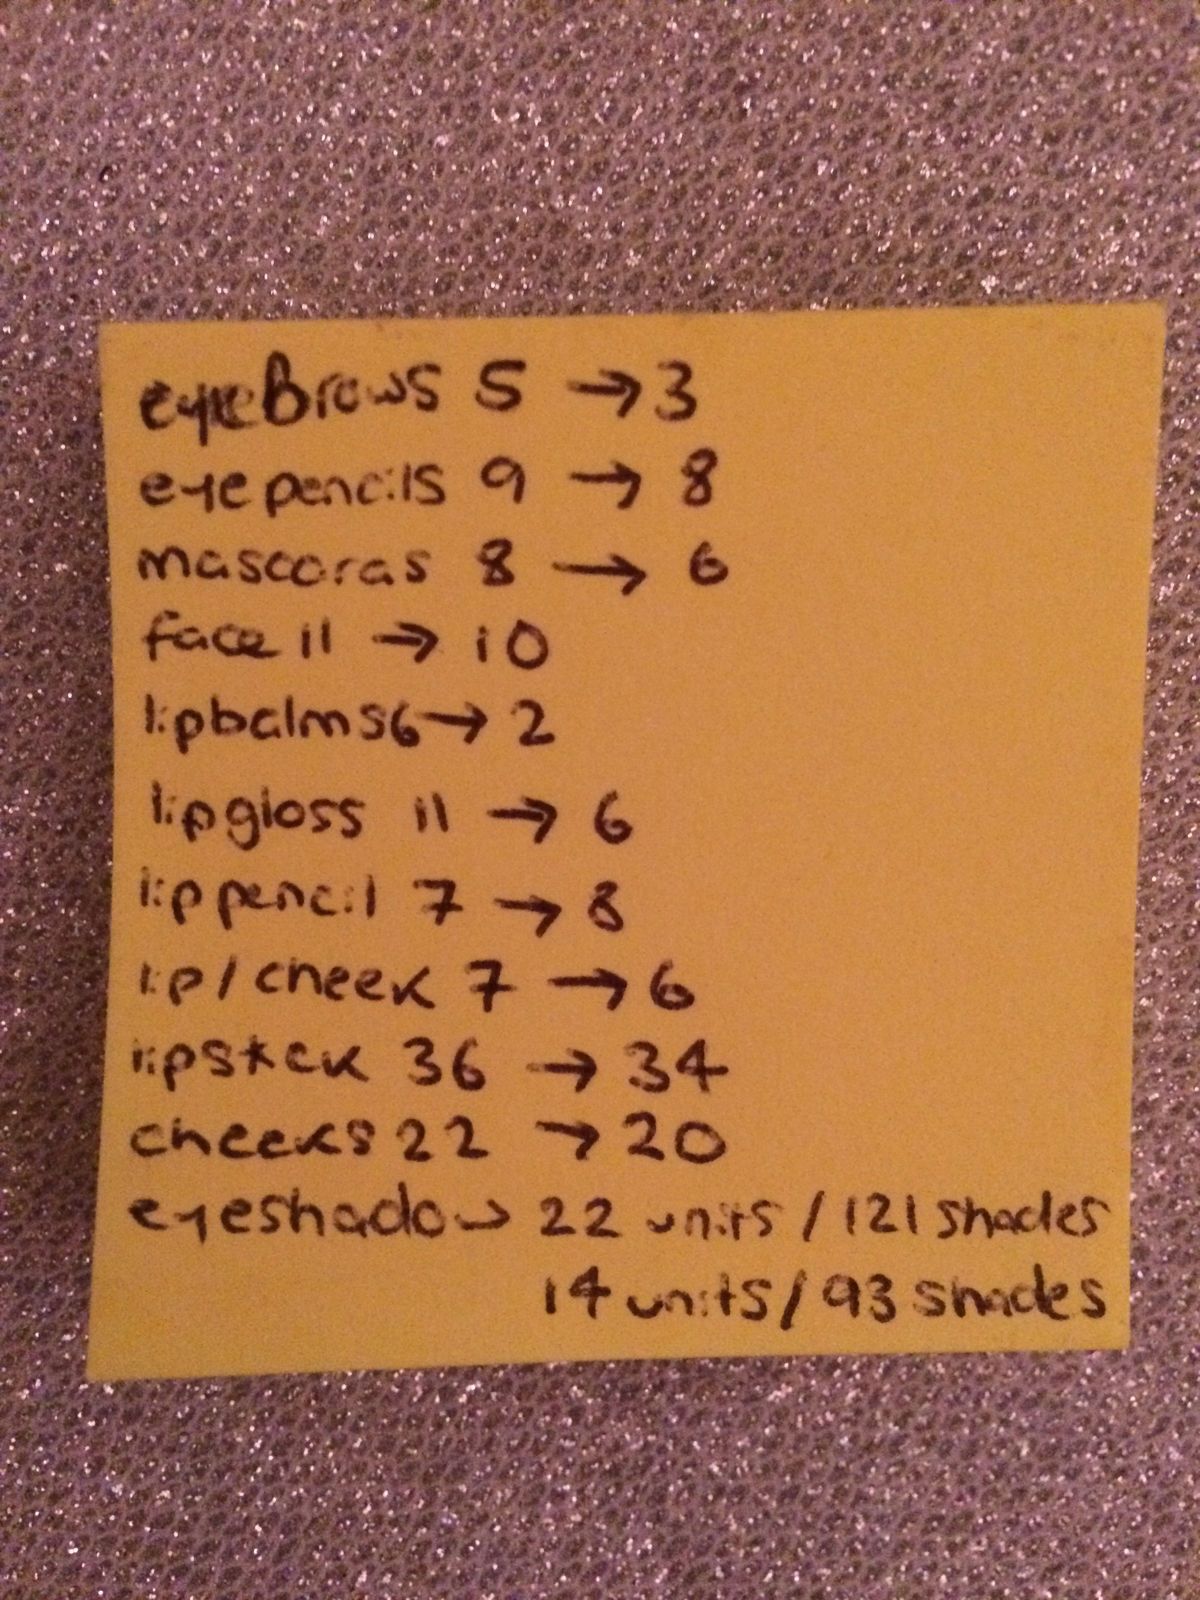 eyeBrows 5 → 3
eyepencils 9 → 8
mascaras 8 → 6
face 11 → 10
lipbalms 6 → 2
lipgloss 11 → 6
lippencil 7 → 8
lip/cheek 7 → 6
lipstick 36 → 34
cheeks 22 → 20
eyeshadow 22 units / 121 shades
14 units / 93 shades